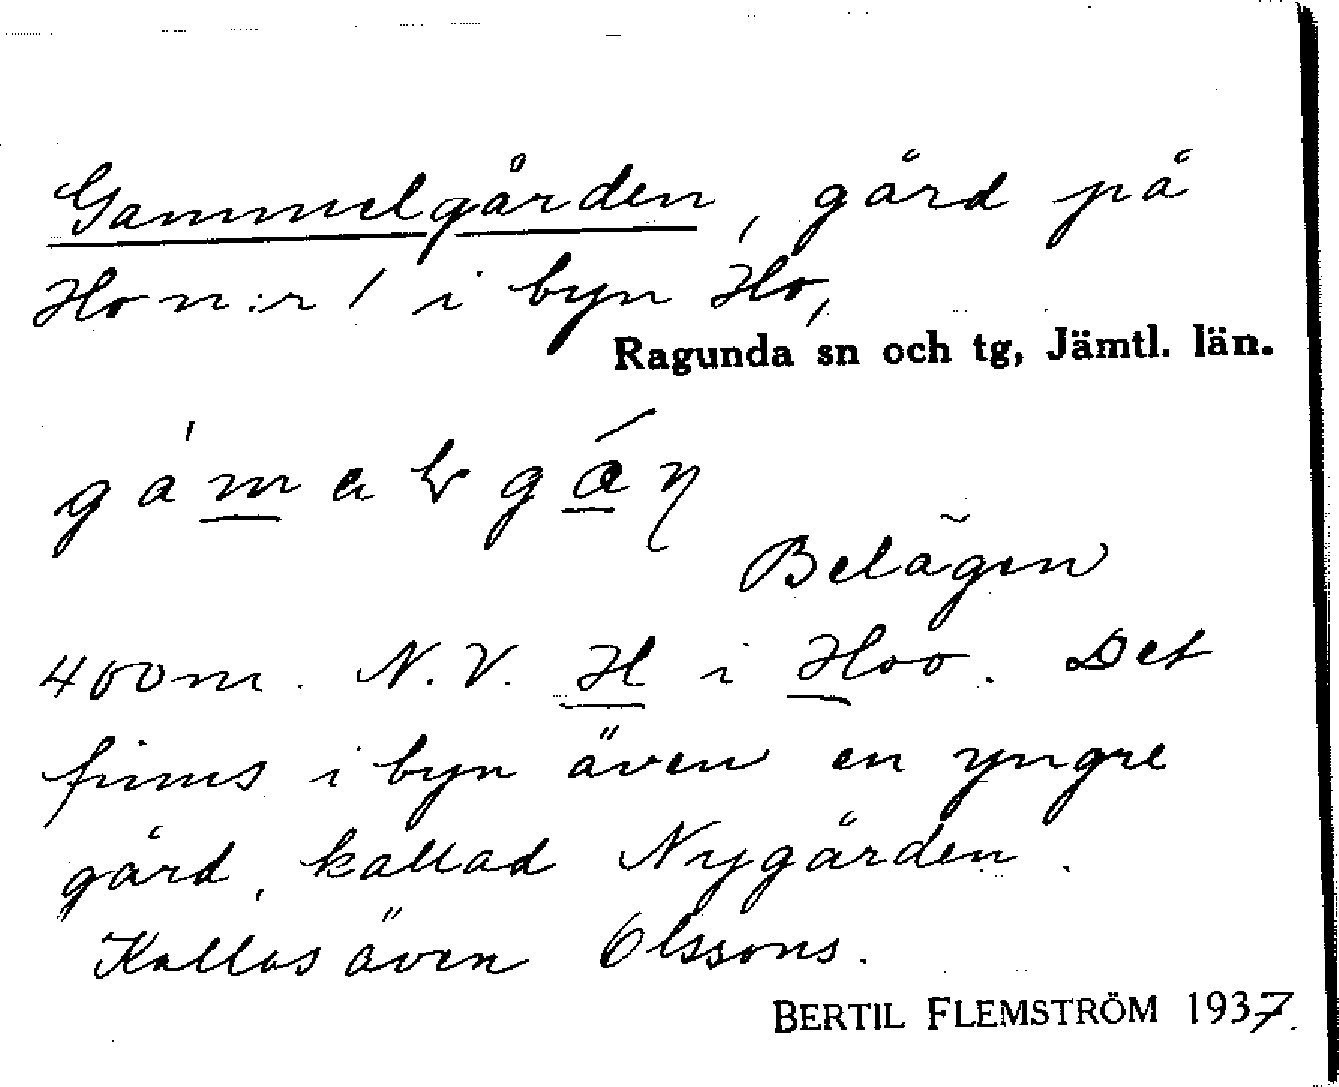 Gammelgården, gård på
Ho n:r 1 i byn Ho,
Ragunda sn och tg, Jämtl. län.
Belägen
400 m. N.V. H i Hoo. Det
finns i byn även en yngre
gård, kallad Nygården.
Kallas även Olssons.
BERTIL FLEMSTRÖM 1937.